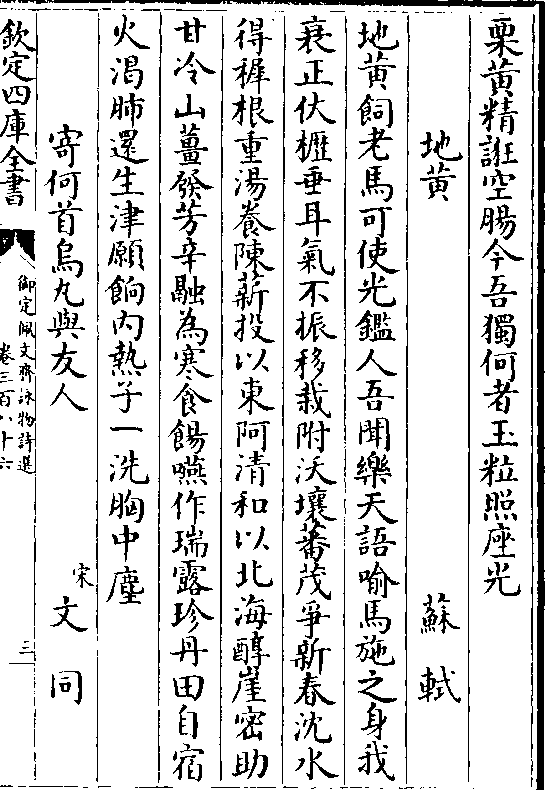 栗黄精誑空腸今吾獨何者玉粒照座光
地黄 蘇軾
地黄飼老馬可使光鑑人吾聞樂天語喻馬施之身我
衰正伏櫪垂耳氣不振移栽附沃壤蕃茂爭新春沈水
得穉根重湯養陳薪投以東阿清和以北海醇崖密助
甘冷山薑發芳辛融為寒食餳嚥作瑞露珍丹田自宿
火渴肺還生津願餉内熱子一洗胸中塵
寄何首烏丸與友人 宋文同
欽定四庫全書
御定佩文齋詠物詩選
卷三百八十六
三